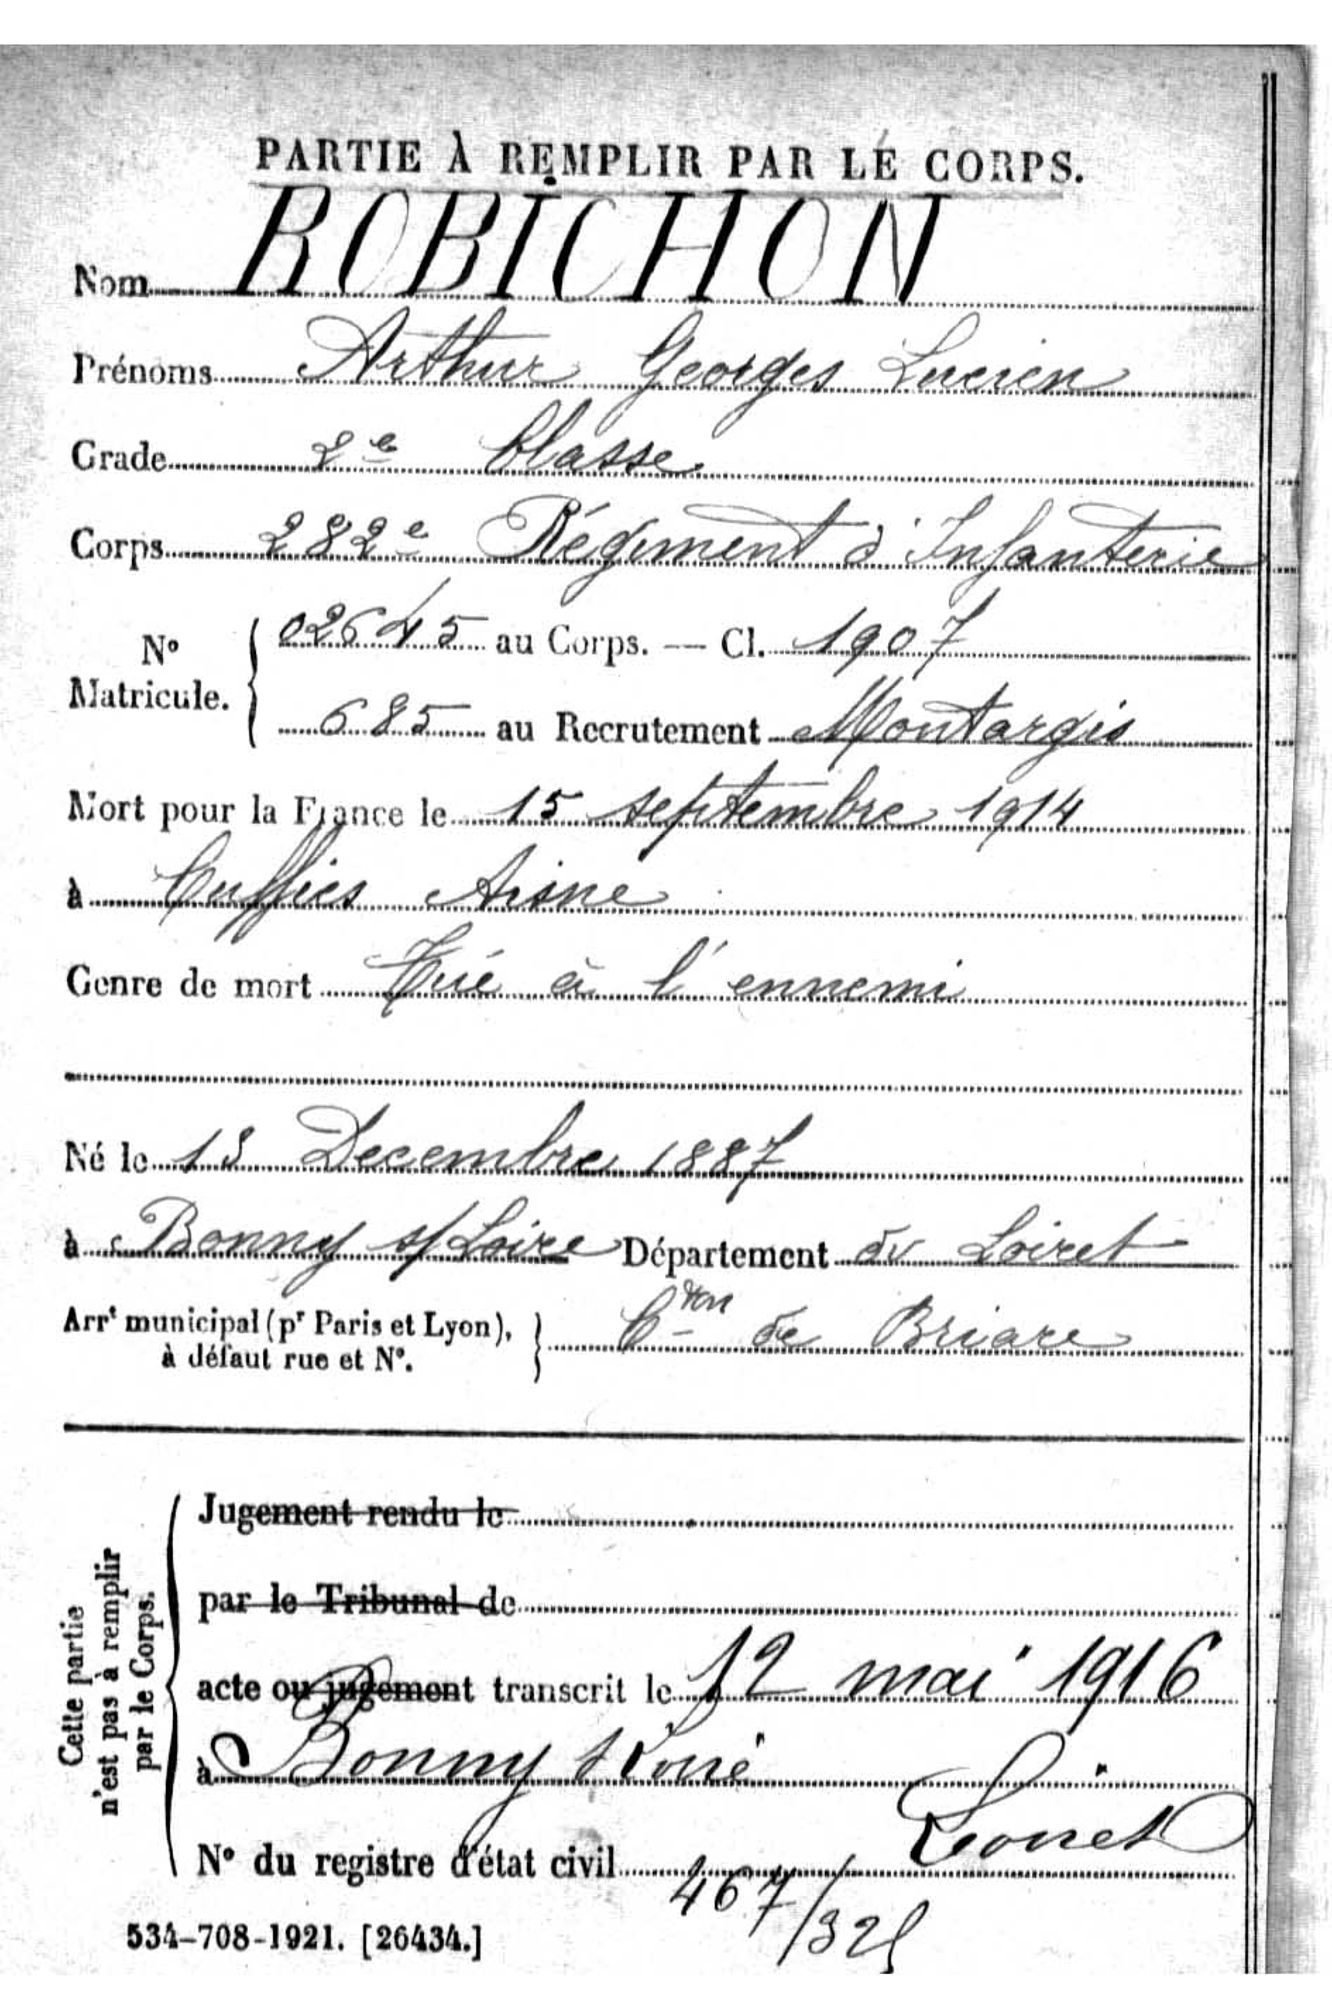 PARTIE À REMPLIR PAR LE CORPS.
Nom ROBICHON
Prénoms Arthur Georges Lucien
Grade 2e Classe
Corps 282e Régiment d'Infanterie
No Matricule. { 02645 au Corps. — Cl. 1907
685 au Recrutement Montargis
Mort pour la France le 15 septembre 1914
à Cuffies Aisne
Genre de mort Tué à l'ennemi
Né le Decembre 1887
à Bonny s/Loire Département du Loiret
Arrt municipal (pr Paris et Lyon), à défaut rue et No. } Cton de Briare
Cette partie n'est pas à remplir par le Corps.
Jugement rendu le
par le Tribunal de
acte ou jugement transcrit le 12 mai 1916
à Bonny s/Loire
Loiret
No du registre d'état civil
467/325
534-708-1921. [26434.]